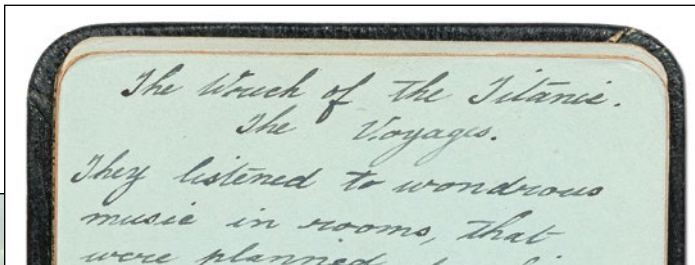 The Wreck of the Titanic.
The Voyages.
They listened to wondrous
music in rooms, that
were planned